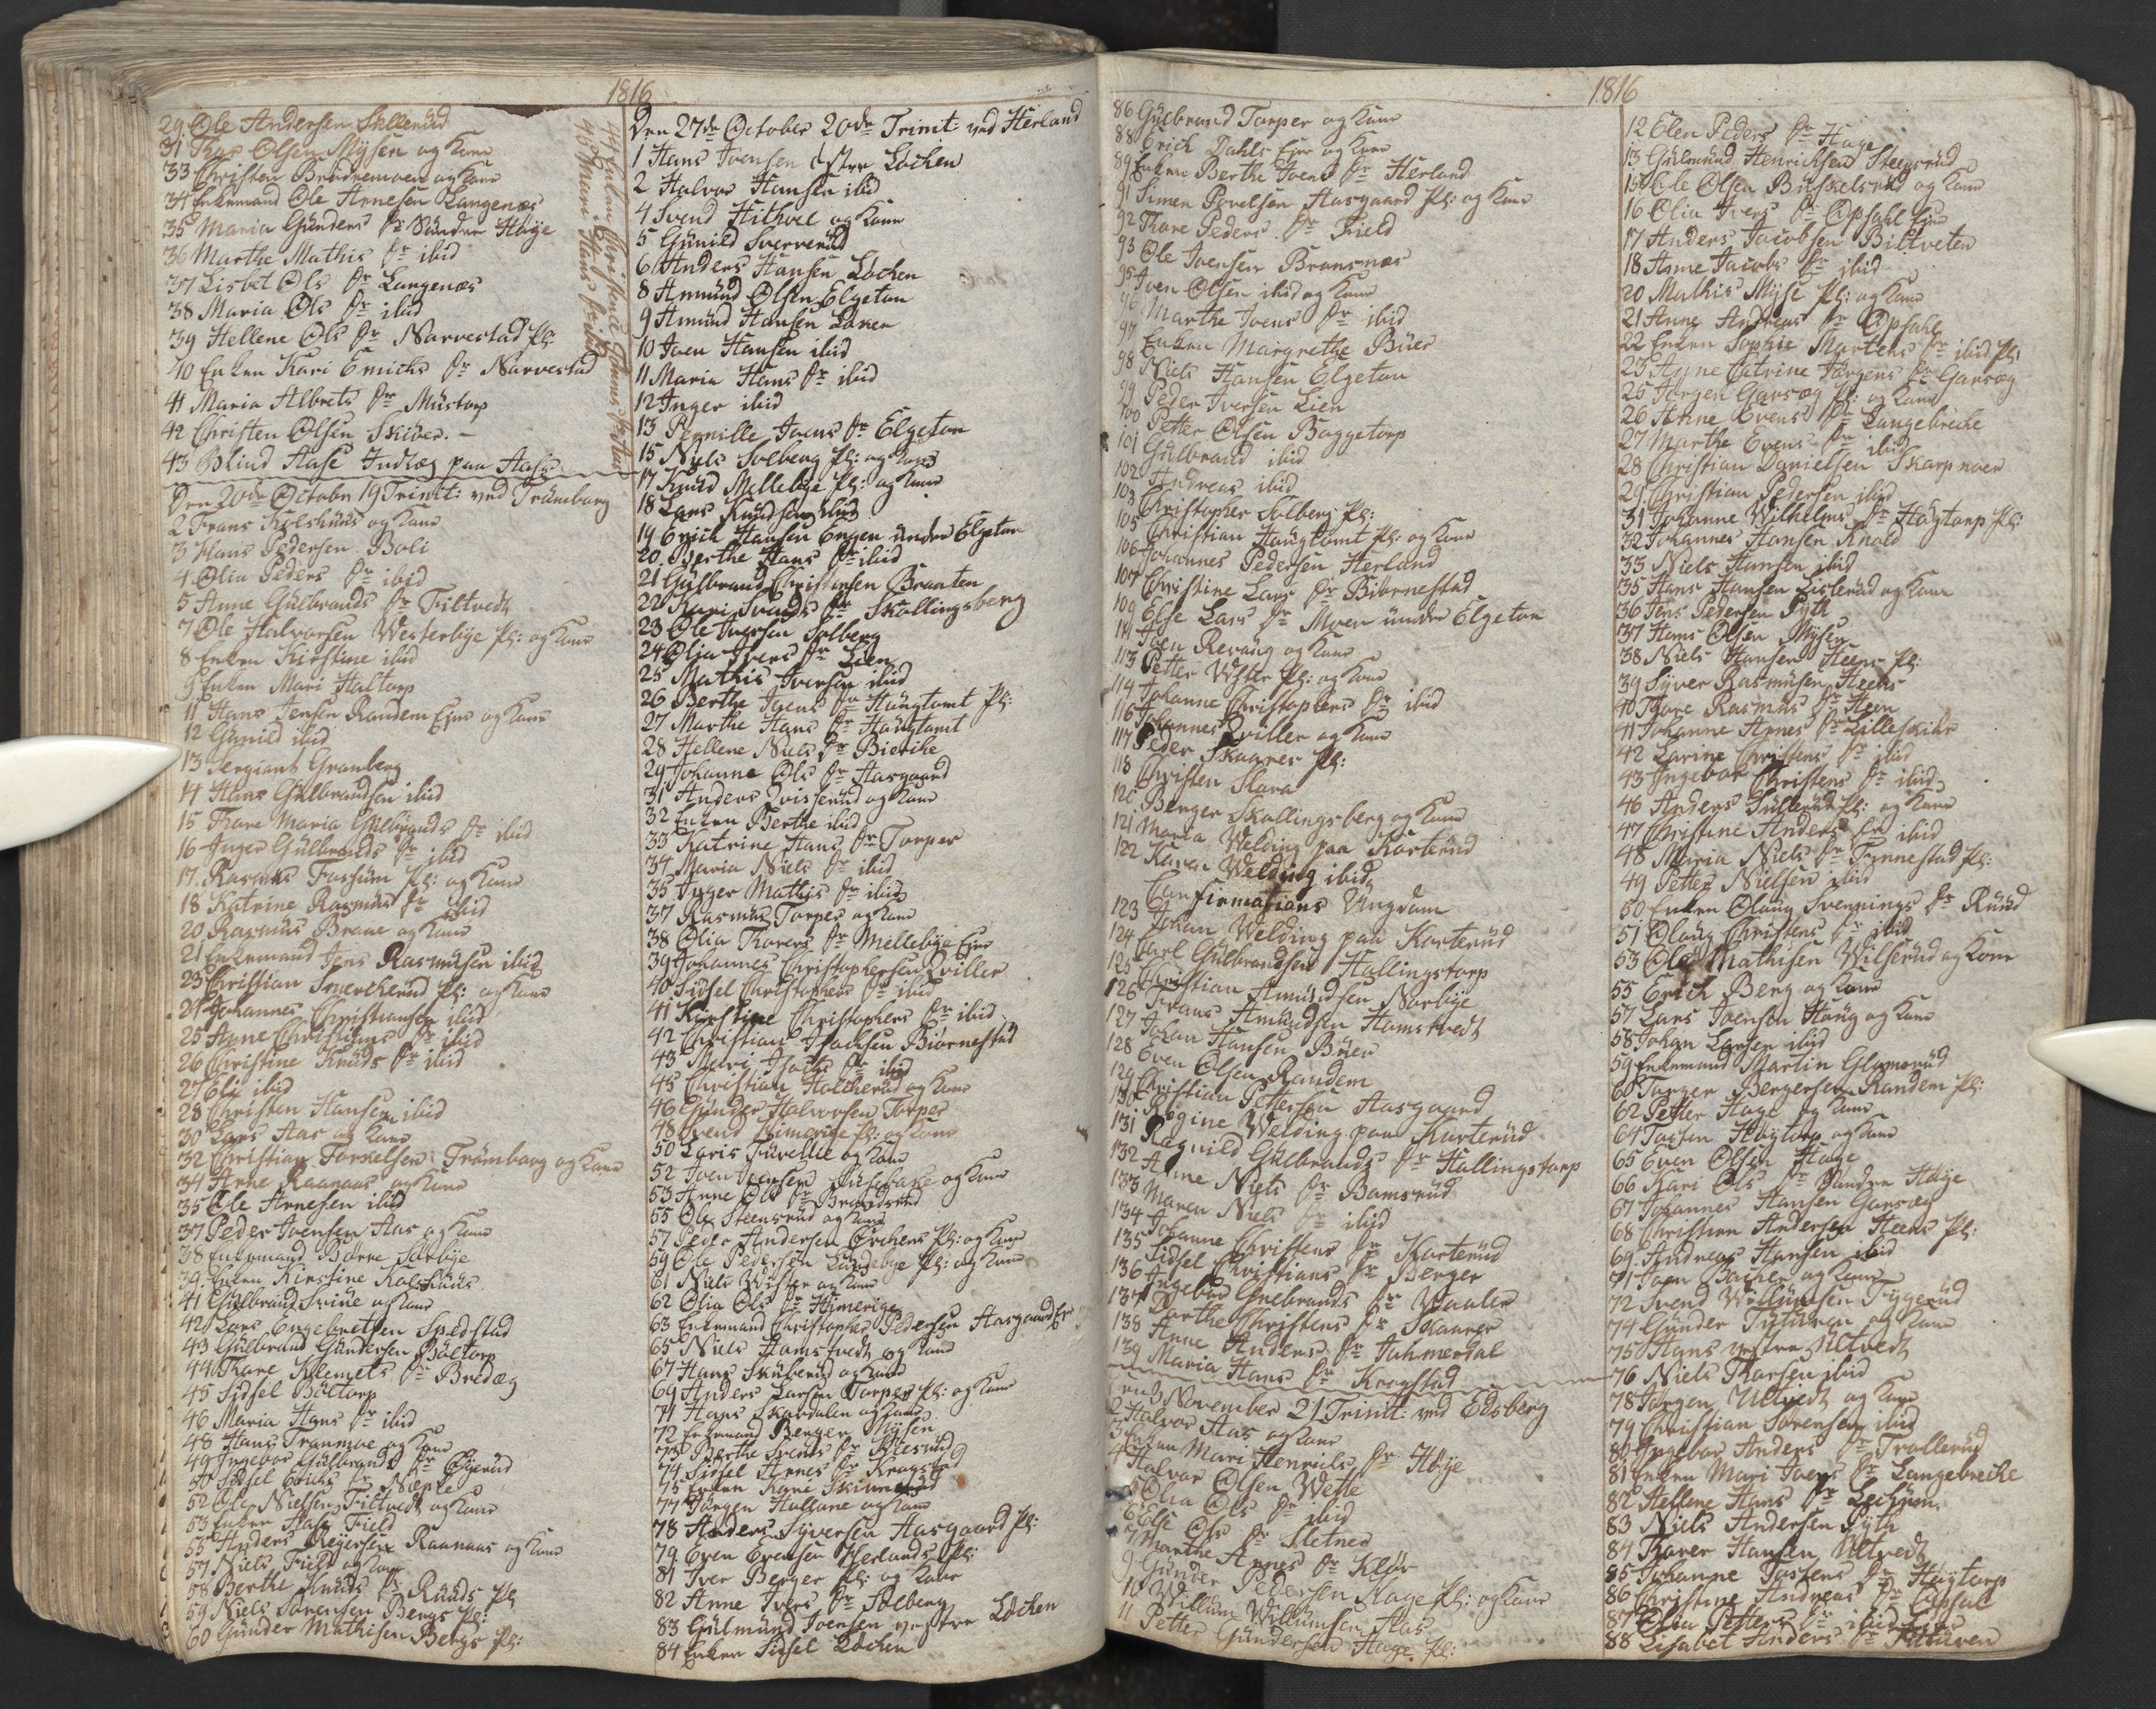 1816
29 Ole Andersen Skllerud
31 Thor Olsen Mysen og Kone
33 Christen Brødremoen og Kone
34 Enkemand Ole Arnesen Langenæs
35 Maria Gunders Dr Søndre Høye
36 Marthe Mathis Dr ibid
37 Lisbet Ols Dr Langenæs
38 Maria Ols Dr ibid
39 Hellene Ols Dr Narvestad Pl:
40 Enken Kari Emichs Dr Narvestad
41 Maria Albrets Dr Mustorp
42 Christen Olsen Skiver. -
43 Blind Aase Indlæg paa Aase
44 Enken Christence
45 Mari Hans Dr ibid
Den 20de October 19 Trinit: ved Trømborg
2 Frans Kolshuus og Kone
3 Hans Pedersen Boli
4 Olia Peders Dr ibid
5 Anne Gulbrands Dr Tiltvedt
7 Ole Halvorsen Westerbye Pl: og Kone
8 Enken Kirstine ibid
9 Enken Mari Haltorp
11 Hans Jensen Randem Eier og Kone
12 Gunild ibid
13 Sergiant Granberg
14 Hans Gulbrandsen ibid
15 Thore Maria Gulbrands Dr ibid
16 Inger Gulbrands Dr ibid
17 Rasmus Fossum Pl: og Kone
18 Katrine Rasmus Dr ibid
20 Rasmus Braae og Kone
21 Enkemand Jens Rasmusen ibid
23 Christian Smerckerud Pl: og Kone
24 Johannes Christiansen ibid
25 Anne Christians Dr ibid
26 Christine Knuds Dr ibid
27 Eli ibid
28 Christen Hansen ibid
30 Lars Aas og Kone
32 Christian Torkelsen Trømborg og Kone
34 Arne Raanaas og Kone
35 Ole Arnesen ibid
37 Peder Joensen Aas og Kone
38 Enkemand Børre Sørbye
39 Enken Kirstine Kolshuus
41 Gulbrand Svine og Kone
42 Lars Engebretsen Spedstad
43 Gulbrand Gundersen Bøltorp
44 Thore Klemets Dr Bredæg
45 Sidsel Bøltorp
46 Maria Hans Dr ibid
48 Hans Tranmoe og Kone
49 Ingebor Gulbrands Dr Øyerud
50 Sidsel Erichs Dr Næple
52 Ole Nielsen Tiltvedt og Kone
53 Enken Aase Field
55 Anders Reyersen Raanaas og Kone
57 Niels Field og Kone
58 Berthe Knuds Dr Ruuds Pl
59 Niels Sørensen Bergs Pl:
60 Gunder Mathisen Bergs Pl:
Den 27de October 20de Trinit: ved Herland
1 Hans Joensen østre Løchen
2 Halvor Hansen ibid
4 Svend Hithoel og Kone
5 Gunild Sververud
6 Anders Hansen Løchen
8 Amund Olsen Elgeton
9 Amund Hansen Løken
10 Joen Hansen ibid
11 Maria Hans Dr ibid
12 Inger ibid
13 Pernille Joens Dr Elgeton
15 Niels Solberg Pl: og Kone
17 Knud Mellebye Pl: og Kone
18 Lars Knudsen ibid
19 Erich Hansen Engen under Elgeton
20 Berthe Hans Dr ibid
21 Gulbrand Christensen Braaten
22 Kari Svends Dr Skallingsberg
23 Ole Iversen Solberg
24 Olia Ivers Dr Lien
25 Mathis Iversen ibid
26 Berthe Joens Dr Haugtomt Pl:
27 Marthe Hans Dr Haugtomt
28 Hellene Niels Dr Bierche
29 Johanne Ols Dr Aasgaard
31 Anders Qvisserud og Kone
32 Enken Berthe ibid
33 Katrine Hans Dr Torper
34 Maria Niels Dr ibid
35 Inger Mathis Dr ibid
37 Rasmus Torper og Kone
38 Olia Thorers Dr Mellebye Eier
39 Johannes Christophersen Qviller
40 Sidsel Christophers Dr ibid
41 Kirstine Christophers Dr ibid
42 Christian Isachsen Biørnestad
43 Mari Isachs Dr ibid
45 Christian Holcherud og Kone
46 Gunder Halvorsen Torper
48 Svend Himerige Pl: og Kone
50 Loris Furvellie og Kone
52 Joen Joensen Husebakke og Kone
53 Anne Ols Dr Brandsrud
55 Ole Steensrud og Kone
57 Peder Andersen Ørchens Pl: og Kone
59 Ole Pedersen Lundebye Pl: og Kone
61 Niels Wister og Kone
62 Olia Ols Dr Himerige
63 Enkemand Christopher Pedersen Aasgaard Er
65 Niels Homstvedt og Kone
67 Hans Skuberud og Kone
69 Anders Larsen Torpers Pl: og Kone
71 Hans Skovdalen og Kone
72 Enkemand Berger Mysen
73 Berthe Svends Dr Klesrud
74 Sidsel Arnes Dr Krogstad
75 Enken Kare Skinnerud
77 Jørgen Hallane og Kone
78 Anders Syversen Aasgaard Pl:
79 Even Evensen Herlands Pl:
81 Iver Berger Pl: og Kone
82 Anne Ivers Dr Solberg
83 Gulmund Joensen vestre Løchen
84 Enken Sidsel Løchen
1816
86 Gulbrand Torper og Kone
88 Erich Dahls Eier og Kone
89 Enken Berthe Joens Dr Herland
91 Simen Povelsen Aasgaard Pl: og Kone
92 Thore Peders Dr Field
93 Ole Joensen Bransnæs
95 Joen Olsen ibid og Kone
96 Marthe Joens Dr ibid
97 Enken Margrethe Buer
98 Niels Hansen Elgeton
99 Peder Iversen Lien
100 Petter Olsen Boggetorp
101 Gulbrand ibid
102 Andreas ibid
103 Christopher Solberg Pl:
105 Christian Haugtomt Pl: og Kone
106 Johannes Pedersen Herland
107 Christine Lars Dr Biørnestad
109 Else Lars Dr Moen under Elgeton
111 Joen Revaug og Kone
113 Petter Wister Pl: og Kone
114 Johanne Christophers Dr ibid
116 Johannes Qviller og Kone
117 Peder Skaarer Pl:
118 Christen Skara
120 Berger Skallingsberg og Kone
121 Maria Welding paa Korterud
122 Karen Welding ibid
Confirmations Ungdom
123 Johan Welding paa Korterud
124 Carl Gulbrandsen Hallingstorp
125 Christian Amundsen Norbye
126 Frans Amundsen Homstvedt
127 Johan Hansen Buer
128 Even Olsen Randem
129 Christian Pettersen Aasgaard
130 Regine Welding paa Korterud
131 Regnild Gulbrands Dr Hallingstorp
132 Anne Niels Dr Bamsrud
133 Maren Niels Dr ibid
134 Johanne Christens Dr Korterud
135 Sidsel Christians Dr Berger
136 Ingebor Gulbrands Dr Waaler
137 Berthe Christens Dr Skaarer
138 Anne Anders Dr Julmerdal
139 Maria Hans Dr Krogstad
Den 3 November 21 Trinit: ved Edsberg
2 Halvor Aas og Kone
3 Enken Mari Henrichs Dr Høye
4 Halvor Olsen Wette
5 Olia Ols Dr ibid
6 Else Ols Dr Sletner
7 Marthe Arnes Dr Kløv
9 Gunder Pedersen Hage Pl: og Kone
10 Willum Willumsen Aas
11 Petter Gundersen Hage Pl:
12 Elen Peders Dr Hage
13 Gulmund Henrichsen Steegsrud
15 Ole Olsen Buskelsrud og Kone
16 Olia Ivers Dr Opsahl Eier
17 Anders Jacobsen Biltveten
18 Anne Jacobs Dr ibid
20 Mathis Myse Pl: og Kone
21 Anne Andreas Dr Opsahl
22 Enken Sophie Martens Dr ibid Pl:
23 Anne Catrine Jørgens Dr Garseg
25 Jørgen Garsæg Pl: og Kone
26 Anne Evens Dr Langebreche
27 Marthe Evens Dr ibid
28 Christian Danielsen Skarpnoer
29 Christian Pedersen ibid
31 Johanne Wilhelms Dr Høytorp Pl:
32 Johannes Hansen Knold
33 Niels Hansen ibid
35 Hans Hansen Lisletud og Kone
36 Jens Pedersen Pyth
37 Hans Olsen Mysen
38 Niels Hansen Heens Pl:
39 Syver Rasmusen Heens
40 Thore Rasmus Dr Heen
41 Johanne Arnes Dr Lilleskibr
42 Larine Christens Dr ibid
43 Ingebor Christens Dr ibid
46 Anders Sullerud Pl: og Kone
47 Christine Anders Dr ibid
48 Maria Niels Dr Tynnestad Pl:
49 Petter Nielsen ibid
50 Enken Olaug Svennings Dr Ruud
51 Olaug Christens Dr ibid
53 Ole Mathisen Wilserud og Kone
55 Erich Berg og Kone
57 Lars Joensen Haug og Kone
58 Johan Larsen ibid
59 Enkemand Martin Glomsrud
60 Torger Bergersen Randem Pl:
62 Petter Hage og Kone
64 Torsten Høytorp og Kone
65 Even Olsen Hage
66 Kari Ols Dr Søndre Høye
67 Johannes Hansen Garsæg
68 Christian Andersen Heens Pl:
69 Andreas Hansen ibid
71 Joen Bacher og Kone
72 Svend Willumsen Tygerud
74 Gunder Tuturen og Kone
75 Hans vestre Ultvedt
76 Niels Thorsen ibid
78 Jørgen Ultvedt og Kone
79 Christian Sørensen ibid
80 Ingebor Anders Dr Trollerud
81 Enken Mari Ivers Dr Langebreche
82 Hellene Hans Dr Lechum
83 Niels Andersen Pyth
84 Thorer Hansen Ultvedt
85 Johanne Tostens Dr Høytorp
86 Christine Andreas Dr Opsal
87 Olia Petters Dr ibid Eier
88 Lisabet Anders Dr Tuturen